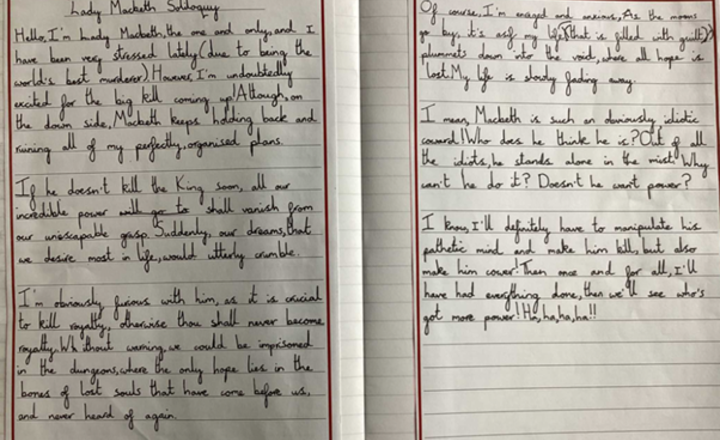 Lady Macbeth Soliloquy
Hello, I'm Lady Macbeth, the one and only, and I
have been very stressed lately (due to being the
world's best murderer). However, I'm undoubtedly
excited for the big kill coming up! Although, on
the down side, Macbeth keeps holding back and
ruining all of my perfectly, organised plans.
If he doesn't kill the King soon, all our
incredible power will go to shall vanish from
our unescapable grasp. Suddenly, our dreams, that
we desire most in life, would utterly crumble.
I'm obviously furious with him, as it is crucial
to kill royalty, otherwise thou shall never become
royalty. Without warning, we could be imprisoned
in the dungeons, where the only hope lies in the
bones of lost souls that have come before us,
and never heard of again.
Of course, I'm enraged and anxious, As the moons
go by, it's as if my life (that is filled with guilt)
plummets down into the void, where all hope is
lost. My life is slowly fading away.
I mean, Macbeth is such an obviously idiotic
coward! Who does he think he is? Out of all
the idiots, he stands alone in the mist. Why
can't he do it? Doesn't he want power?
I know, I'll definitely have to manipulate his
pathetic mind and make him kill, but also
make him cower. Then once and for all, I'll
have had everything done, then we'll see who's
got more power! Ha, ha, ha, ha!!